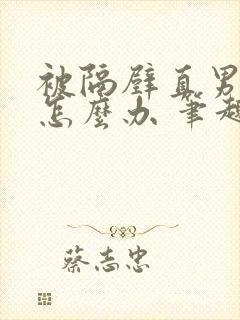 被隔壁直男
怎麼办 笔趣
蔡志忠